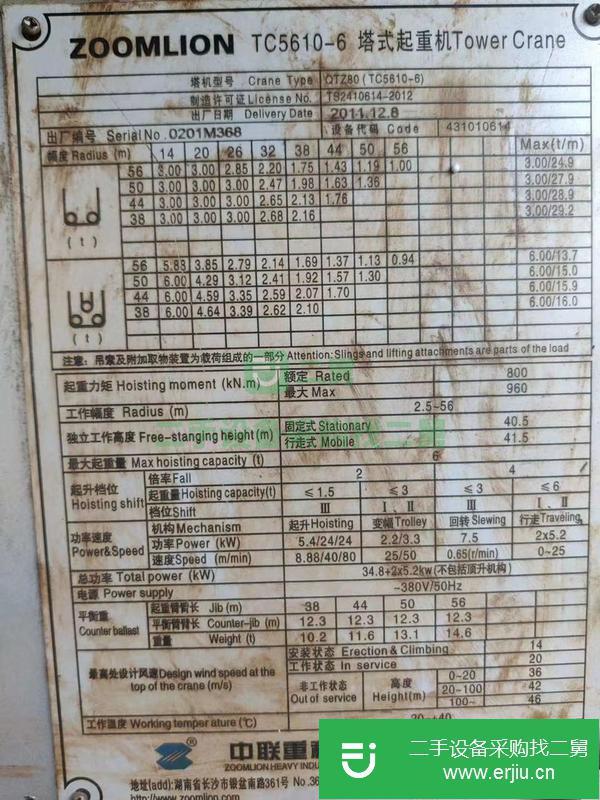 ZOOMLION TC5610-6 塔式起重机Tower Crane
塔机型号 Crane Type QTZ80 (TC5610-6)
制造许可证License No. TS2410614-2012
出厂日期 Delivery Date 2011.12.8
出厂编号 Serial No. 0201M368 设备代码 Code 431010614
幅度 Radius (m) 14 20 26 32 38 44 50 56 Max(t/m)
56 3.00 3.00 2.85 2.20 1.75 1.43 1.19 1.00 3.00/24.9
50 3.00 3.00 3.00 2.47 1.98 1.63 1.36 3.00/27.9
44 3.00 3.00 3.00 2.65 2.13 1.76 3.00/28.9
38 3.00 3.00 3.00 2.68 2.16 3.00/29.2
(t)
56 5.83 3.85 2.79 2.14 1.69 1.37 1.13 0.94 6.00/13.7
50 6.00 4.29 3.12 2.41 1.92 1.57 1.30 6.00/15.0
44 6.00 4.59 3.35 2.59 2.07 1.70 6.00/15.9
38 6.00 4.64 3.39 2.62 2.10 6.00/16.0
(t)
注意: 吊索及附加取物装置为载荷组成的一部分 Attention: Slings and lifting attachments are parts of the load
起重力矩 Hoisting moment (kN.m) 额定 Rated 800
最大 Max 960
工作幅度 Radius (m) 2.5~56
独立工作高度 Free-stanging height(m) 固定式 Stationary 40.5
行走式 Mobile 41.5
最大起重量 Max hoisting capacity (t) 6
起升档位 Hoisting shift 倍率 Fall 2 4
起重量Hoisting capacity(t) ≤1.5 ≤3 ≤3 ≤6
档位Shift Ⅲ Ⅰ、Ⅱ Ⅲ Ⅰ、Ⅱ
功率速度 Power&Speed 机构 Mechanism 起升 Hoisting 变幅 Trolley 回转 Slewing 行走 Traveling
功率 Power (kW) 5.4/24/24 2.2/3.3 7.5 2x5.2
速度 Speed (m/min) 8.88/40/80 25/50 0.65(r/min) 0~25
总功率 Total power (kW) 34.8+2x5.2kw (不包括顶升机构)
电源 Power supply ~380V/50Hz
平衡重 Counter ballast 起重臂臂长 Jib (m) 38 44 50 56
平衡臂臂长 Counter-jib (m) 12.3 12.3 12.3 12.3
重量 Weight (t) 10.2 11.6 13.1 14.6
最高处设计风速Design wind speed at the top of the crane (m/s) 安装状态 Erection & Climbing 14
工作状态 In service 20
非工作状态 Out of service 高度 Height(m) 0~20 36
20~100 42
100~ 46
工作温度 Working temper ature (℃)
中联重
ZOOMLION HEAVY INDU
地址(add):湖南省长沙市银盆南路361号 No.36
http://www.zoomlion.com
二手设备采购找二舅
二手设备采购找二舅
www.erjiu.cn